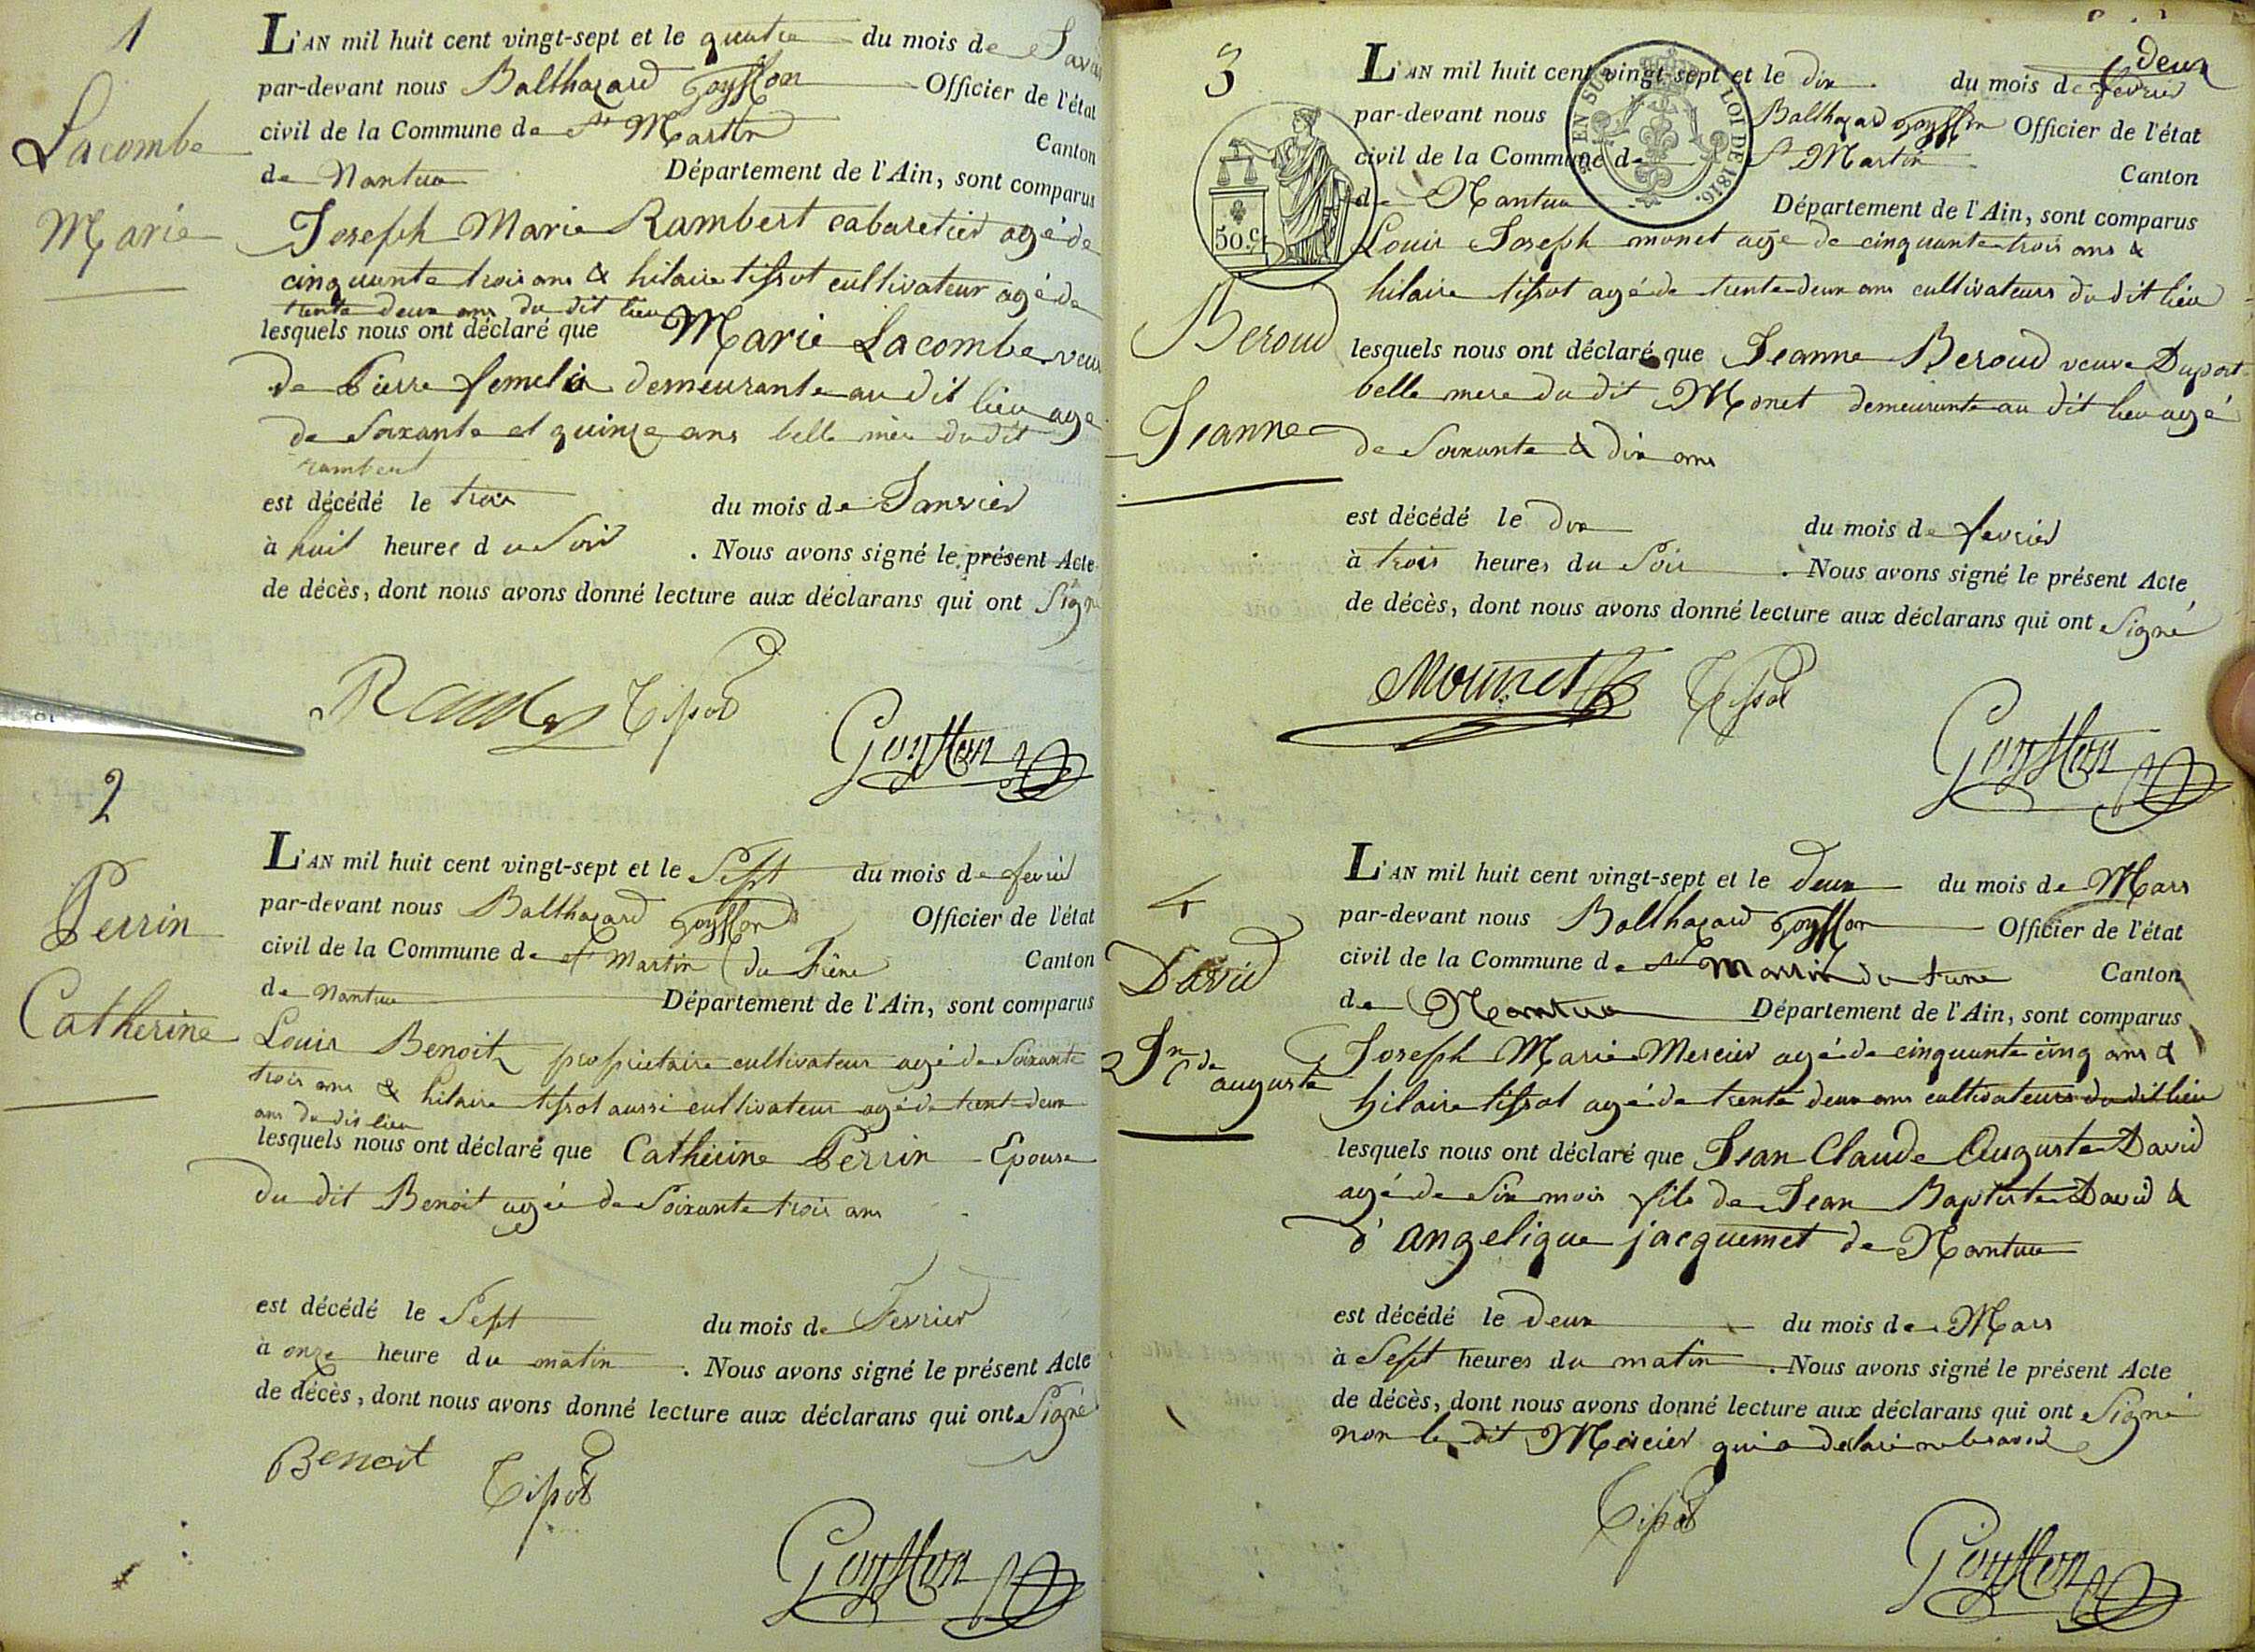 1
Lacombe
Marie
L'AN mil huit cent vingt-sept et le quatre du mois de
par-devant nous Balthazard Goyffon Officier de l'état
civil de la Commune de St Martin Canton
de Nantua Département de l'Ain, sont comparus
Joseph Marie Rambert cabaretier agé de
cinquante trois ans & hilaire tissot cultivateur agé de
trente deux ans du dit lieu
lesquels nous ont déclaré que Marie Lacombe
de Pierre demeurante au dit lieu agé
de Soixante et quinze ans belle mère du dit
rambert
est décédé le trois du mois de Janvier
à huit heures du Soir . Nous avons signé le présent Acte
de décès, dont nous avons donné lecture aux déclarans qui ont
Tissot
Goyffon
2
Perrin
Catherine
L'AN mil huit cent vingt-sept et le Sept du mois de
par-devant nous Balthazard Goyffon Officier de l'état
civil de la Commune de St Martin du Frêne Canton
de Nantua Département de l'Ain, sont comparus
Louis Benoit propriétaire cultivateur agé de Soixante
trois ans & hilaire tissot aussi cultivateur agé de trent deux
ans du dit lieu
lesquels nous ont déclaré que Catherine Perrin Epouse
du dit Benoit agée de Soixante trois ans
est décédé le Sept du mois de Fevrier
à onze heure du matin . Nous avons signé le présent Acte
de décès, dont nous avons donné lecture aux déclarans qui ont Signé
Benoit Tissot
Goyffon
3
Beroud
Jeanne
deux
L'AN mil huit cent vingt-sept et le dix du mois de fevrier
par-devant nous Balthazard Goyffon Officier de l'état
civil de la Commune de St Martin Canton
de Nantua Département de l'Ain, sont comparus
EN SUS LOI DE 1816.
50.c.
Louis Joseph monet agé de cinquante trois ans &
hilaire tissot agé de trente deux ans cultivateurs du dit lieu
lesquels nous ont déclaré que Jeanne Beroud veuve Duport
belle mere du dit Monet demeurante au dit lieu agé
de Soixante & dix ans
est décédé le dix du mois de fevrier
à trois heures du Soir . Nous avons signé le présent Acte
de décès, dont nous avons donné lecture aux déclarans qui ont Signé
Mounet Tissot
Goyffon
4
David
Jn Cde
auguste
L'AN mil huit cent vingt-sept et le deux du mois de Mars
par-devant nous Balthazard Goyffon Officier de l'état
civil de la Commune de St Martin du Canton
de Nantua Département de l'Ain, sont comparus
Joseph Marie Mercier agé de cinquante cinq ans &
hilaire tissot agé de trente deux ans cultivateurs du dit lieu
lesquels nous ont déclaré que Jean Claude Auguste David
agé de Six mois fils de Jean Baptiste David &
d'angelique jacquemet de Nantua
est décédé le deux du mois de Mars
à Sept heures du matin . Nous avons signé le présent Acte
de décès, dont nous avons donné lecture aux déclarans qui ont Signé
non le dit Mercier qui a
Tissot
Goyffon